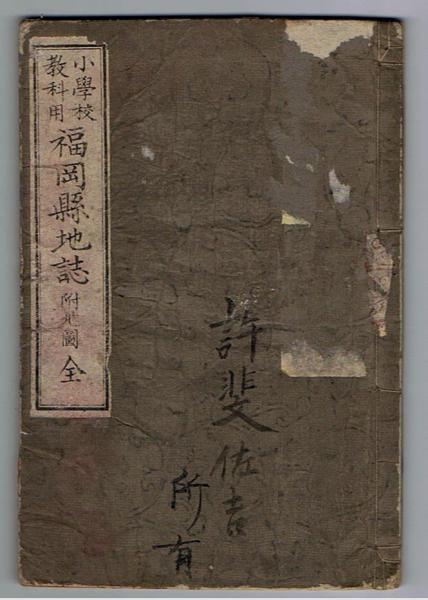 小學校
教科用
福岡縣地誌 附地圖 全
許斐佐吉
所有